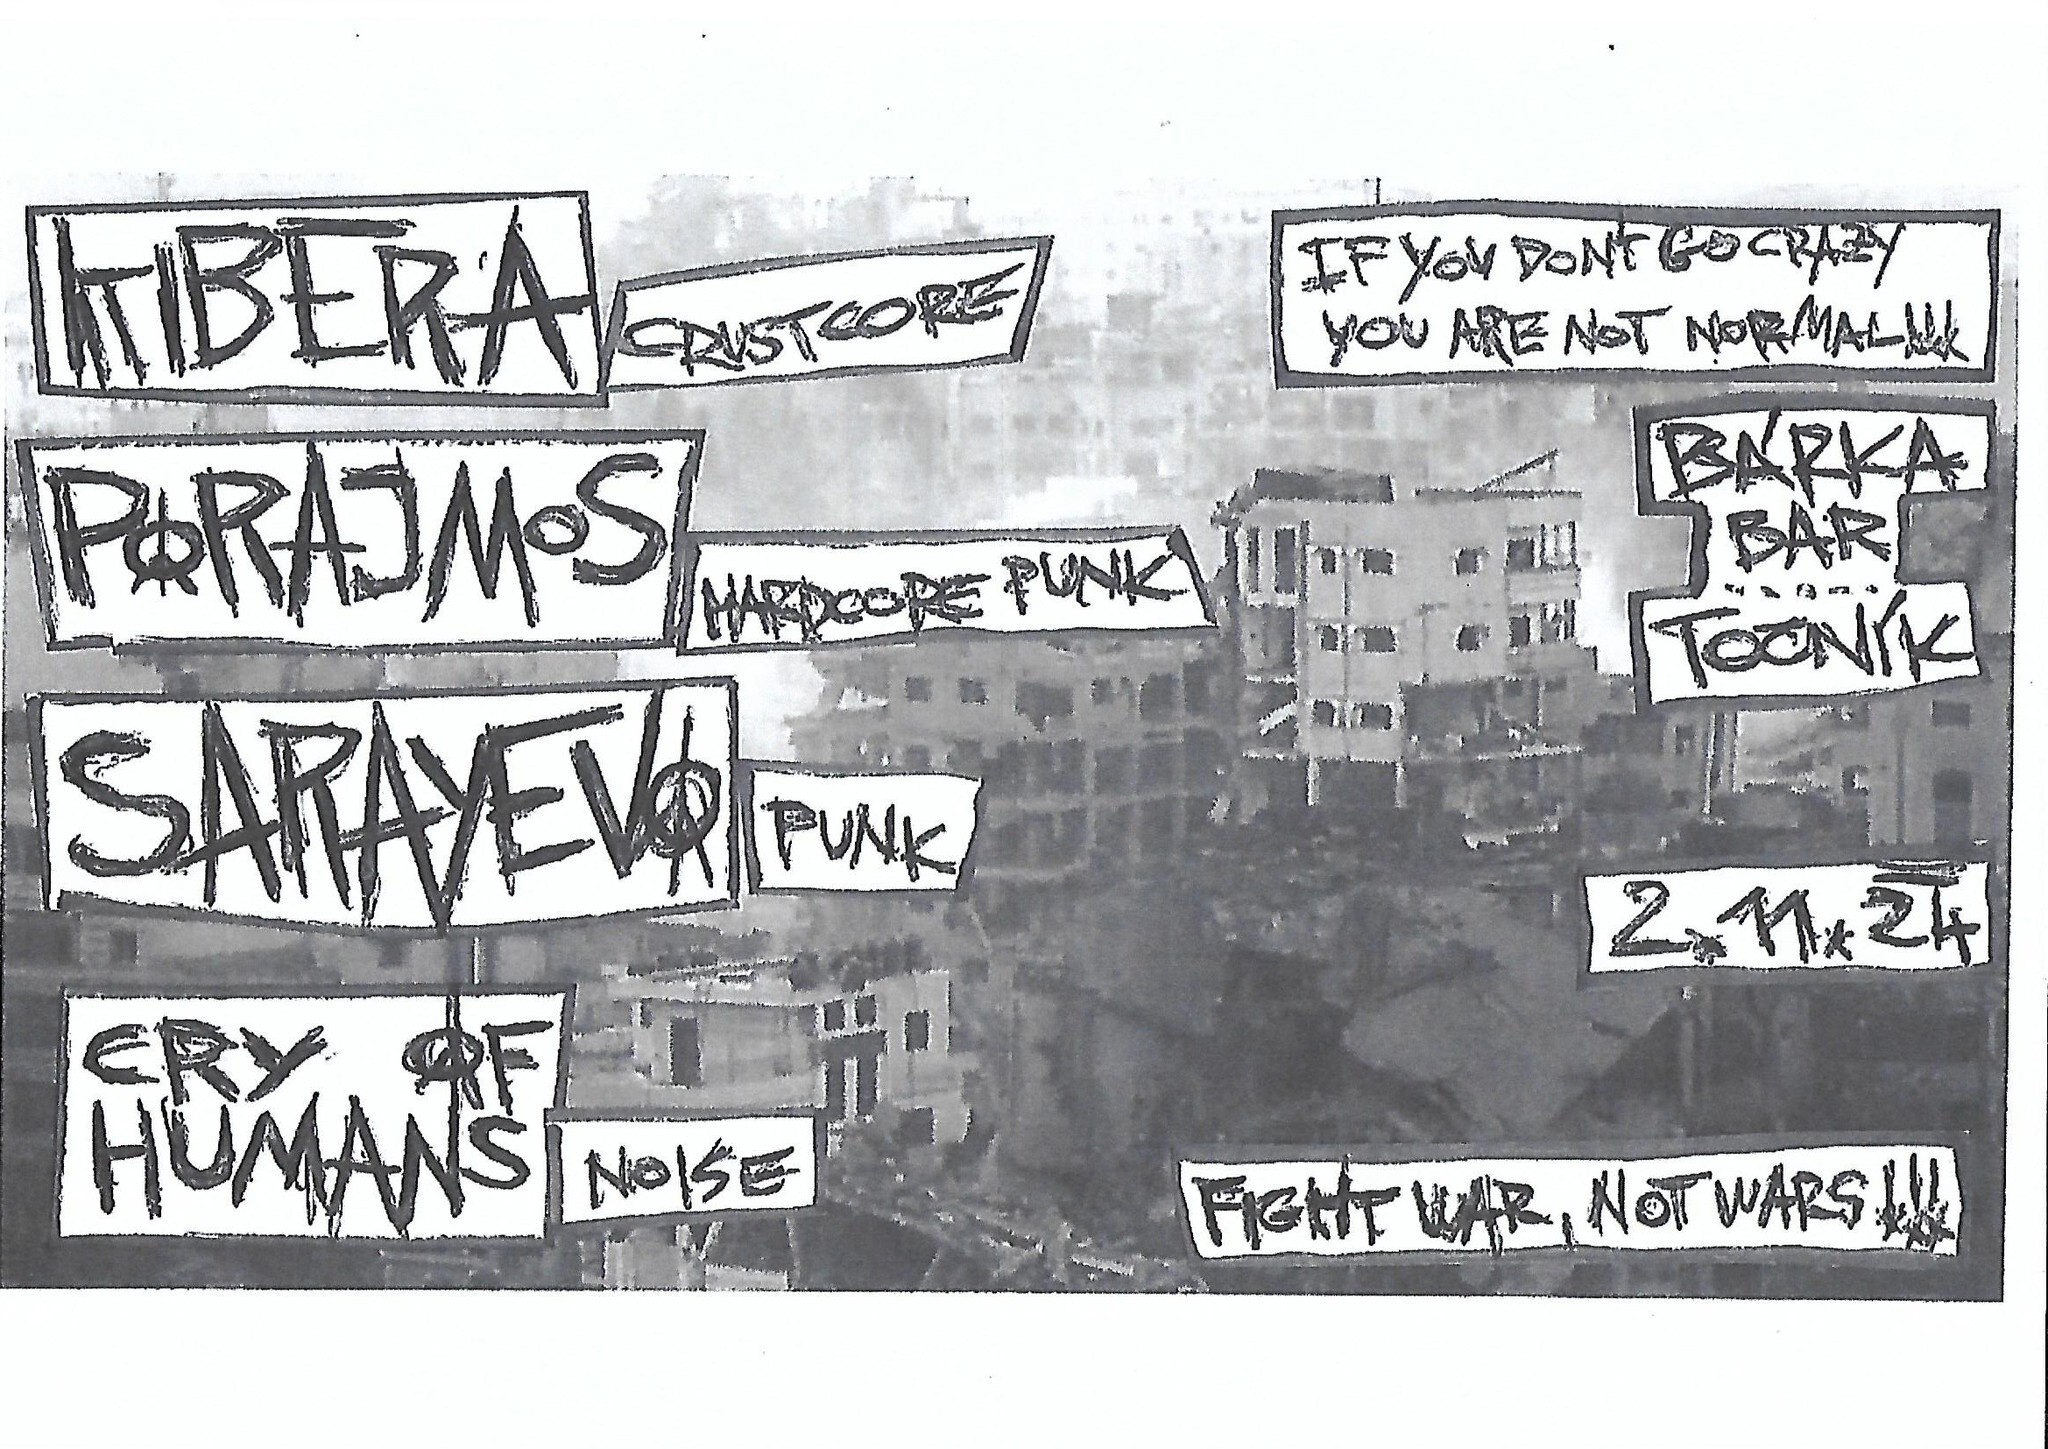 KTIBERA
CRUSTCORE
PORAJMOS
HARDCORE PUNK
SARAYEVO
PUNK
CRY OF
HUMANS
NOISE
IF YOU DONT GO CRAZY
YOU ARE NOT NORMAL!!!
BÁRKA
BAR
TOČNÍK
2.11.24
FIGHT WAR, NOT WARS!!!